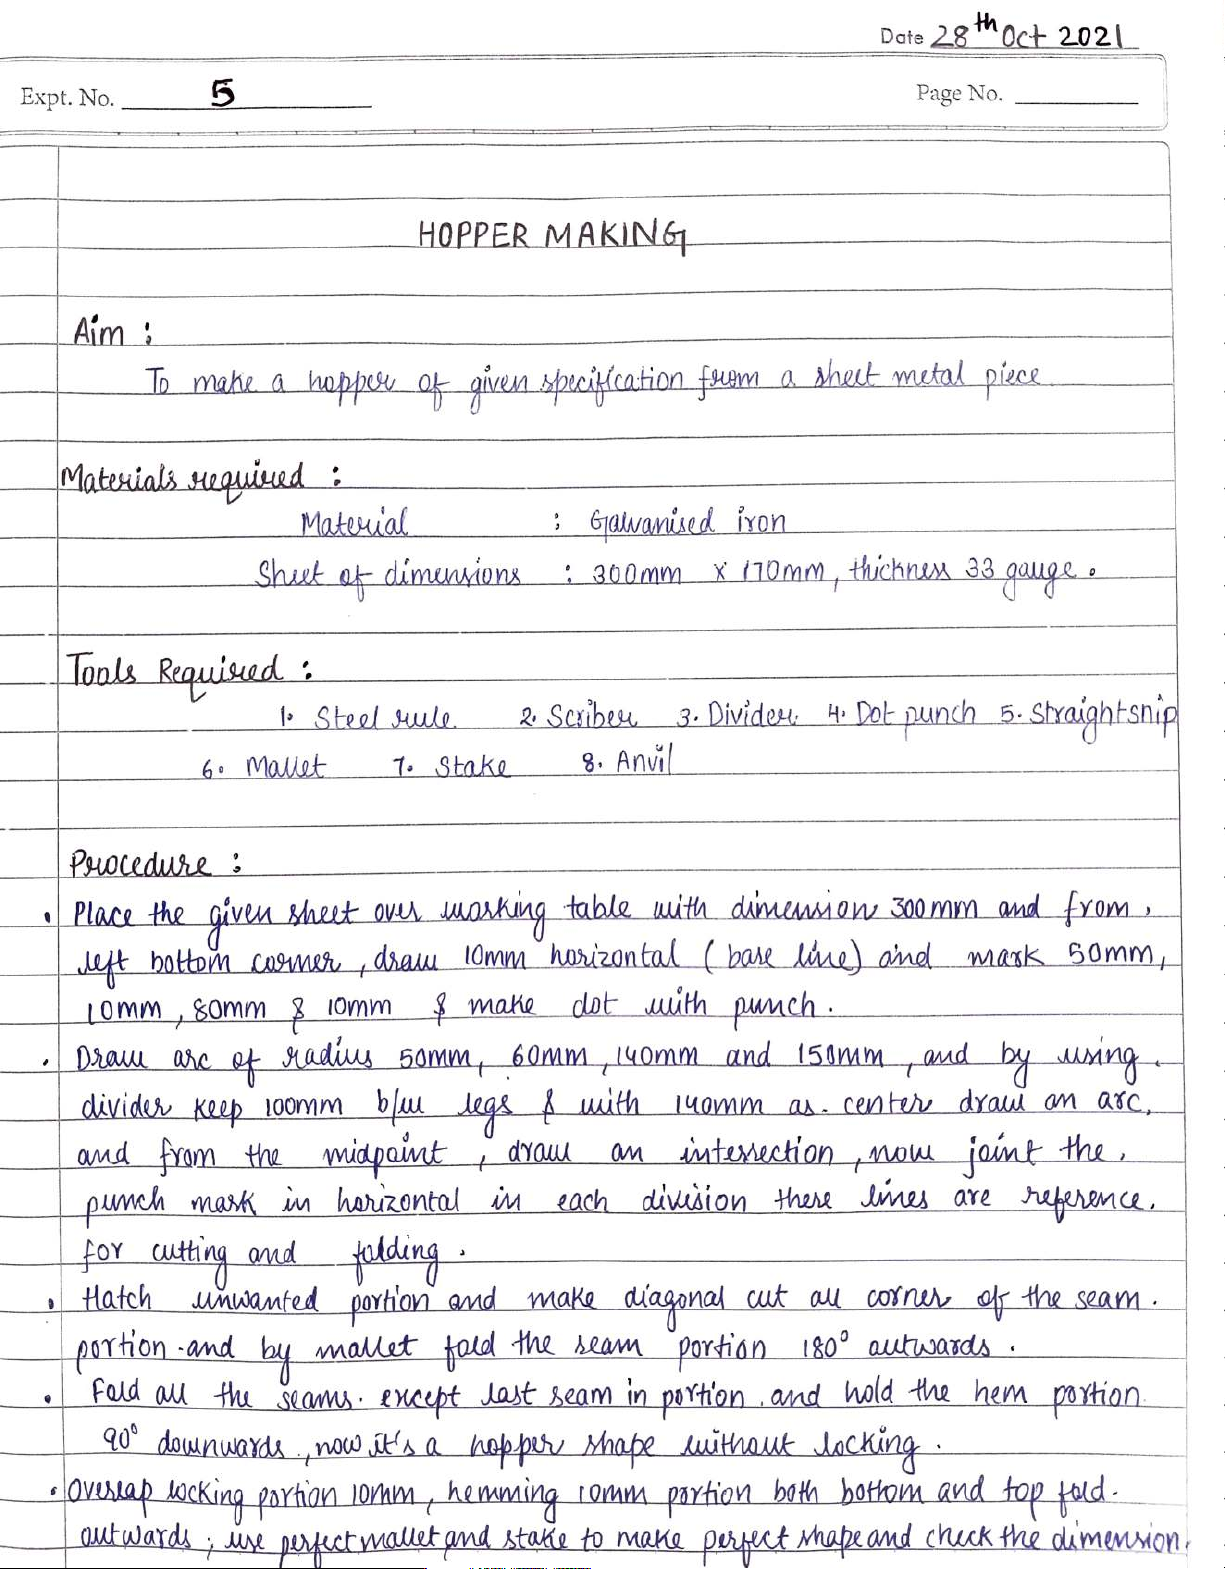 Date 28th Oct 2021
Expt. No. 5
Page No.
HOPPER MAKING
Aim :
To make a hopper of given specification from a sheet metal piece
Materials required :
Material : Galvanised iron
Sheet of dimensions : 300mm x 170mm, thickness 33 gauge.
Tools Required :
1. Steel rule 2. Scriber 3. Divider 4. Dot punch 5. Straightsnip
6. Mallet 7. Stake 8. Anvil
Procedure :
• Place the given sheet over working table with dimension 300mm and from,
left bottom corner, draw 10mm horizontal (base line) and mark 50mm,
10mm, 80mm & 10mm & make dot with punch.
• Draw arc of radius 50mm, 60mm, 140mm and 150mm, and by using.
divider keep 100mm b/w legs & with 140mm as. center draw an arc,
and from the midpoint, draw an intersection, now joint the,
punch mark in horizontal in each division there lines are reference.
for cutting and folding.
• Hatch unwanted portion and make diagonal cut all corner of the seam.
portion. and by mallet fold the seam portion 180° outwards.
• Fold all the seams. except last seam in portion. and hold the hem portion.
90° downwards, now it's a hopper shape without locking.
• Overlap locking portion 10mm, hemming 10mm portion both bottom and top fold.
outwards; use perfect mallet and stake to make perfect shape and check the dimension.